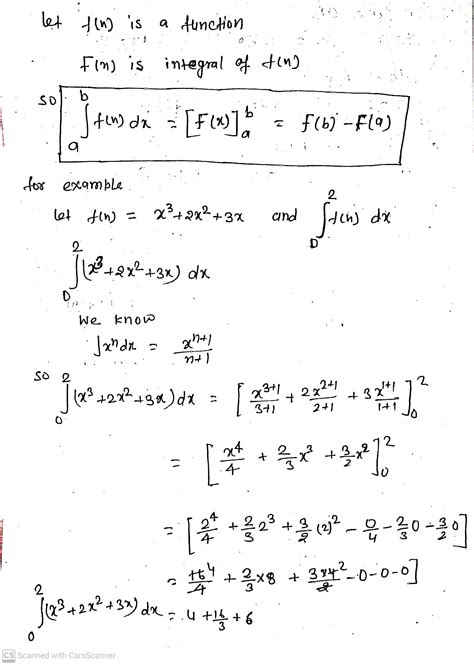 let f(x) is a function
F(x) is integral of f(x)
so ∫_a^b f(x) dx = [F(x)]_a^b = F(b) - F(a)
for example
let f(x) = x³+2x²+3x and ∫_0^2 f(x) dx
∫_0^2 (x³+2x²+3x) dx
We know
∫xⁿdx = xⁿ⁺¹/n+1
so ∫_0^2 (x³+2x²+3x) dx = [x³⁺¹/3+1 + 2x²⁺¹/2+1 + 3x¹⁺¹/1+1]_0^2
= [x⁴/4 + 2/3 x³ + 3/2 x²]_0^2
= [2⁴/4 + 2/3 2³ + 3/2 (2)² - 0/4 - 2/3 0 - 3/2 0]
= 16 4/4 + 2/3×8 + 3×4 2/2 - 0-0-0]
∫_0^2 (x³+2x²+3x) dx = 4 + 16/3 + 6
CS Scanned with CamScanner